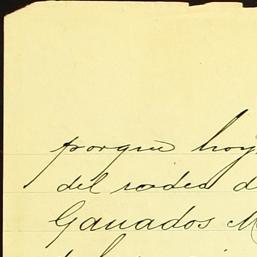 porque hoy
del rodeo d
Ganados M